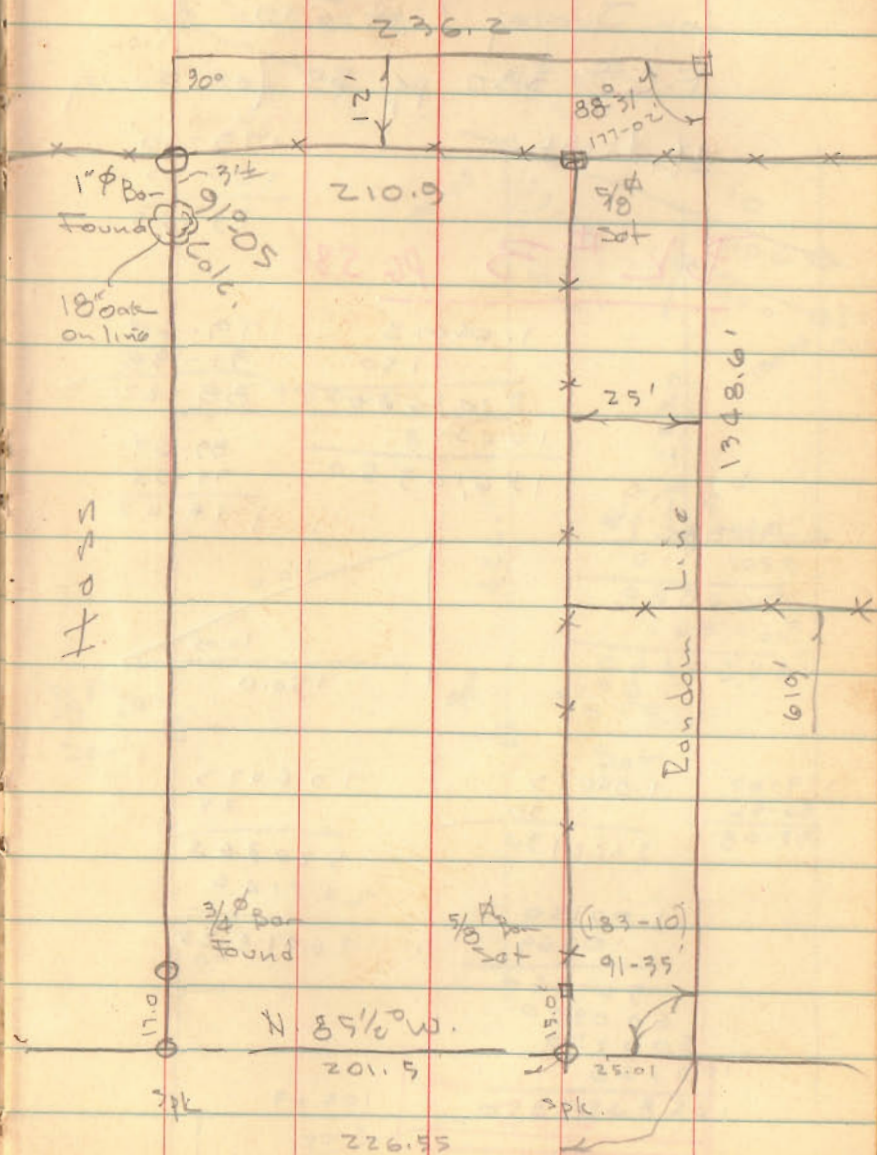 236.2
90°
12'
88°-31'
177-02
1"ϕ Bar
Found
3'±
91°05'
Calc.
210.9
5/8"
Set
18" oak
on line
25'
1348.6'
Hoss
Random Line
619'
3/4"ϕ Bar
Found
5/8" Bar
Set
(183-10)
91-35
17.0
15.0'
N 85 1/2° W.
201.5
25.01
spk
spk.
226.55